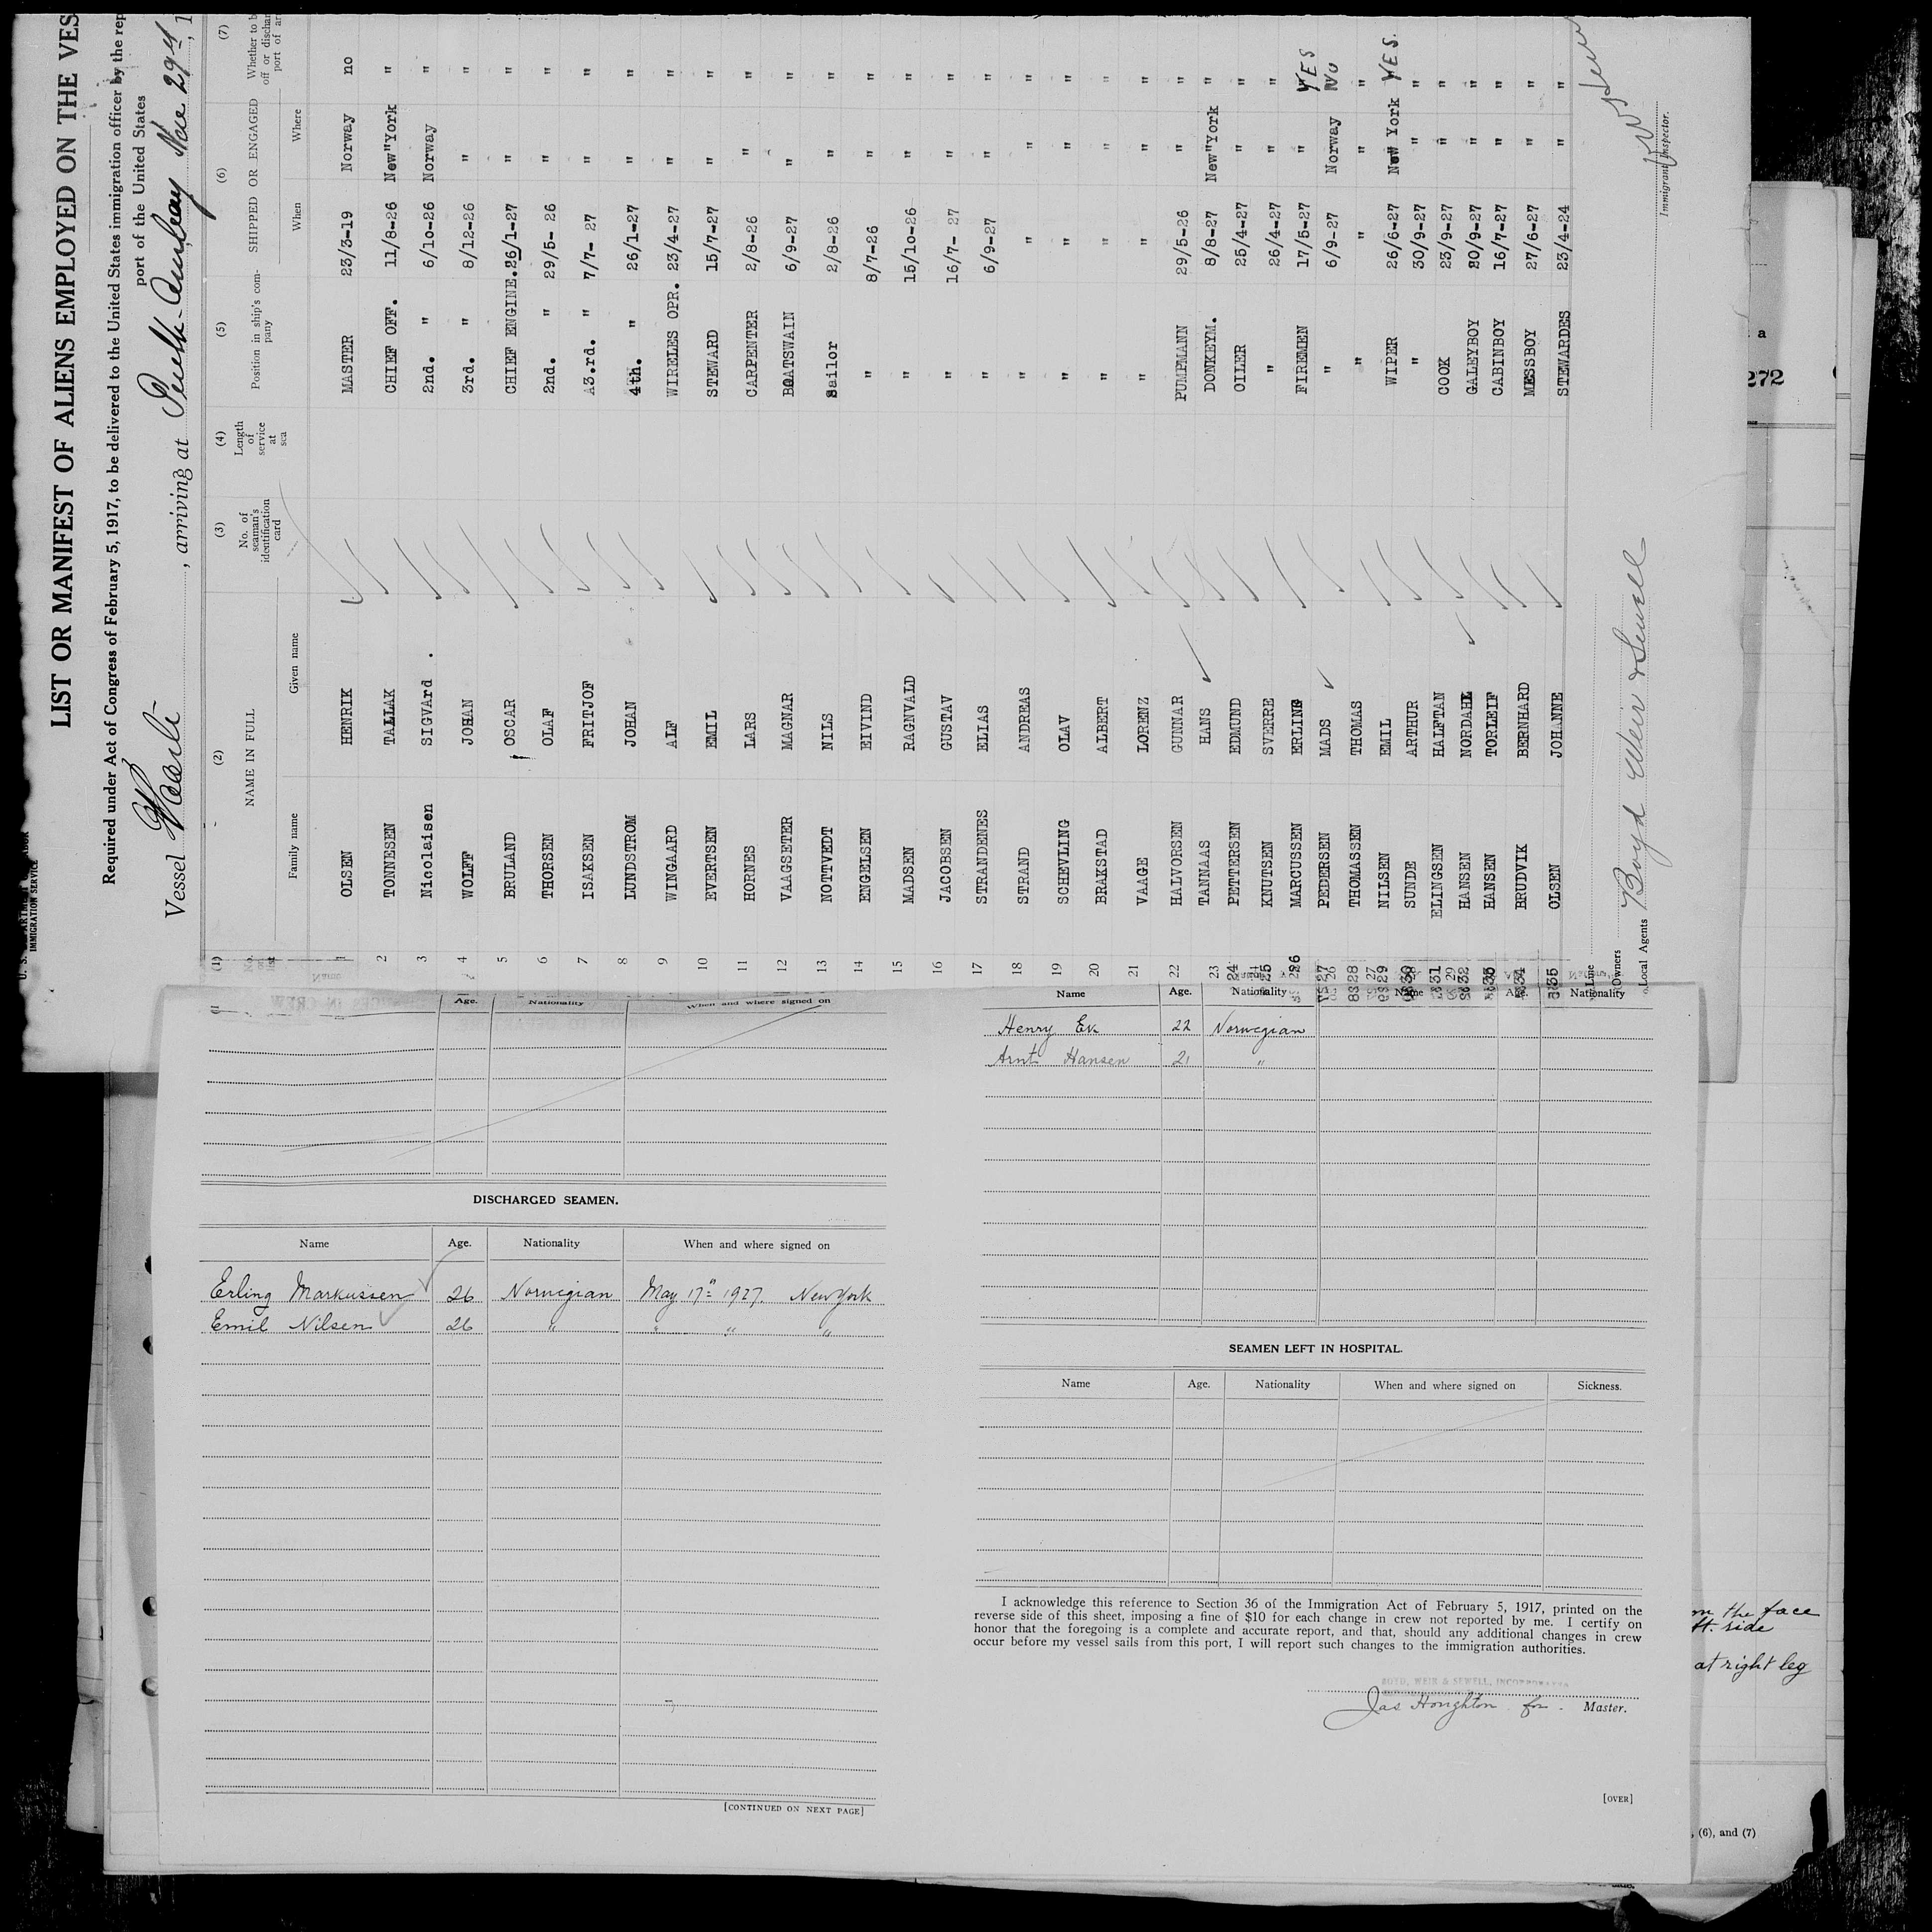 U. S. DEPARTMENT OF LABOR
IMMIGRATION SERVICE
LIST OR MANIFEST OF ALIENS EMPLOYED ON THE VES
Required under Act of Congress of February 5, 1917, to be delivered to the United States immigration officer by the rep
port of the United States
Vessel , arriving at Perth-Amboy 29th , 1
(1) (2) (3) (4) (5) (6) (7)
NAME IN FULL No. of seaman's identification card Length of service at sea Position in ship's company SHIPPED OR ENGAGED Whether to b off or dischar port of ar
Family name Given name When Where
1 OLSEN HENRIK MASTER 23/3-19 Norway no
2 TONNESEN TALLAK CHIEF OFF. 11/8-26 New"York "
3 Nicolaisen SIGVard . 2nd. " 6/10-26 Norway "
4 WOLFF JOHAN 3rd. " 8/12-26 " "
5 BRULAND OSCAR CHIEF ENGINE. 26/1-27 " "
6 THORSEN OLAF 2nd. " 29/5- 26 " "
7 ISAKSEN FRITJOF A3.rd. " 7/7- 27 " "
8 LUNDSTROM JOHAN 4th. " 26/1-27 " "
9 WINGAARD ALF WIRELES OPR. 23/4-27 " "
10 EVERTSEN EMIL STEWARD 15/7-27 " "
11 HORNES LARS CARPENTER 2/8-26 " "
12 VAAGSETER MAGNAR BOATSWAIN 6/9-27 " "
13 NOTTVEDT NILS Sailor 2/8-26 " "
14 ENGELSEN EIVIND " 8/7-26 " "
15 MADSEN RAGNVALD " 15/10-26 " "
16 JACOBSEN GUSTAV " 16/7- 27 " "
17 STRANDENES ELIAS " 6/9-27 " "
18 STRAND ANDREAS " " " "
19 SCHEVLING OLAV " " " "
20 BRAKSTAD ALBERT " " " "
21 VAAGE LORENZ " " " "
22 HALVORSEN GUNNAR PUMPMANN 29/5-26 " "
23 TANNAAS HANS DONKEYM. 8/8-27 New"York "
24 PETTERSEN EDMUND OILER 25/4-27 " "
25 KNUTSEN SVERRE " 26/4-27 " "
26 MARCUSSEN ERLING FIREMEN 17/5-27 " YES
27 PEDERSEN MADS " 6/9-27 Norway NO
28 THOMASSEN THOMAS " " " "
29 NILSEN EMIL WIPER 26/6-27 New York YES.
30 SUNDE ARTHUR " 30/9-27 " "
31 ELINGSEN HALFTAN COOK 23/9-27 " "
32 HANSEN NORDAHL GALEYBOY 20/9-27 " "
33 HANSEN TORLEIF CABINBOY 16/7-27 " "
34 BRUDVIK BERNHARD MESSBOY 27/6-27 " "
35 OLSEN JOHANNE STEWARDES 23/4-24 " "
Line
Owners
Local Agents Boyd Weir & Sewell
Immigrant Inspector.
Name Age. Nationality When and where signed on
DISCHARGED SEAMEN.
Name Age. Nationality When and where signed on
Erling Markussen 26 Norwegian May 17" 1927. New York
Emil Nilsen 26 " " " "
[CONTINUED ON NEXT PAGE]
Name Age. Nationality Name Age. Nationality
Henry Ek 22 Norwegian
Arnt Hansen 21 "
SEAMEN LEFT IN HOSPITAL.
Name Age. Nationality When and where signed on Sickness.
I acknowledge this reference to Section 36 of the Immigration Act of February 5, 1917, printed on the
reverse side of this sheet, imposing a fine of $10 for each change in crew not reported by me. I certify on
honor that the foregoing is a complete and accurate report, and that, should any additional changes in crew
occur before my vessel sails from this port, I will report such changes to the immigration authorities.
BOYD, WEIR & SEWELL, INCORPORATED
Jas Houghton for. Master.
[OVER]
a
272
the face
ft. side
at right leg
, (6), and (7)